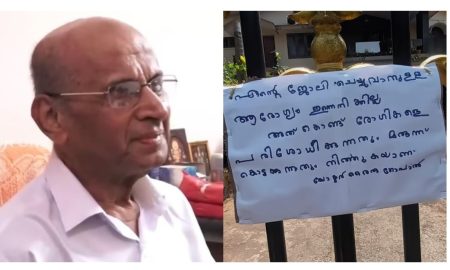 എന്റെ ജോലി ചെയ്യുവാനുള്ള
ആരോഗ്യം ഇന്നെനിക്കില്ല
അത് കൊണ്ട് രോഗികളെ
പരിശോധിക്കുന്നതും, മരുന്ന്
കൊടുക്കുന്നതും നിർത്തുകയാണ്.
ഡോക്ടർ രൈരു ഗോപാൽ